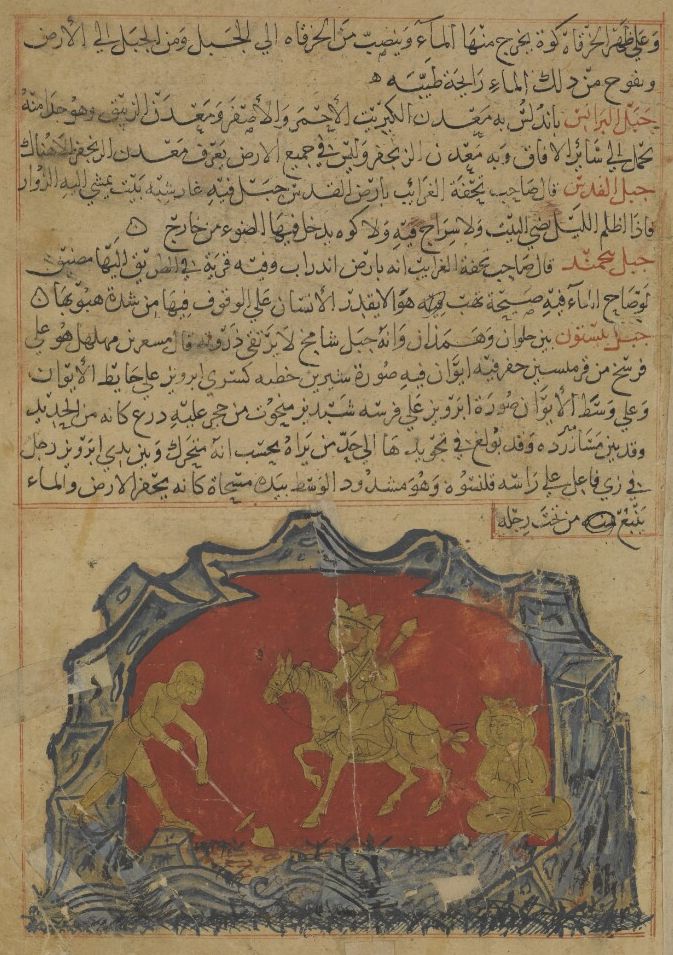 وعلى ظهر الخرقاه كوة يخرج منها المآء وينصبّ من الخرقاه الى الجبل ومن الجبل الى الأرض
ويفوح من ذلك الماء رايحة طيّبه ه
جبل البرانس باندلس به معدن الكبريت الأحمر والأصفر ومعدن الزيبق وهو جدا منه
يحمل الى سائر الافاق وبه معدن الزنجفر وليس في جميع الارض يعرف معدن الزنجفر الا هناك
جبل القدس قال صاحب تحفة الغرايب بارض القدس جبل فيه غار شبه بيت يمشي اليه الزوار
فاذا اظلم الليل يضي البيت ولا سراج فيه ولا كوه يدخل فيها الضوء من خارج ه
جبل قال صاحب تحفة الغرايب انه بارض اندراب وفيه قرية في الطريق اليها مضيق
لو صاح انسان فيه صيحة تهب هوا لا يقدر الأنسان على الوقوف فيها من شدة هبوبها ه
جبل بيستون بين حلوان وهمذان وانه جبل شامخ لا يرتقى ذروته قال مسعر بن مهلهل هو على
فرسخ من قرمسين حفر فيه ايوان فيه صورة شيرين خطبه كسرى ابرويز على حايط الايوان
وعلى وسط الأيوان صورة ابرويز على فرسه شبديز منحوت من حجر عليه درع كانه من الحديد
وقد بين وقد بولغ في الى حدّ من يراه يحسب انه متحرك وبين يدي ابرويز رجل
في زي فاعل على راسه قلنسوه وهو مشدود الوسط بيده مسحاة كانه يحفر الارض والماء
ينبع من تحت رجله